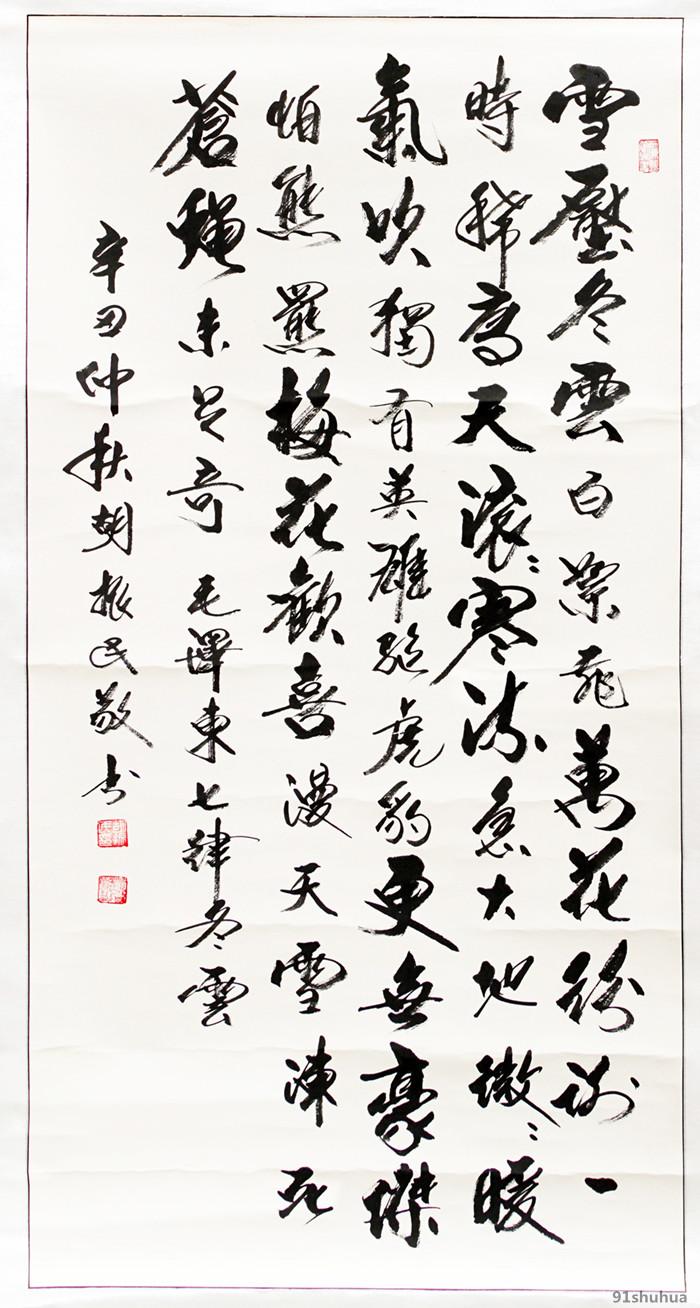 雪壓冬雲白絮飛萬花紛謝一
時稀高天滾〻寒流急大地微〻暖
氣吹獨有英雄驅虎豹更無豪傑
怕熊羆梅花歡喜漫天雪凍死
蒼蠅未足奇 毛澤東七律冬雲
辛丑仲秋胡振民敬书
91shuhua